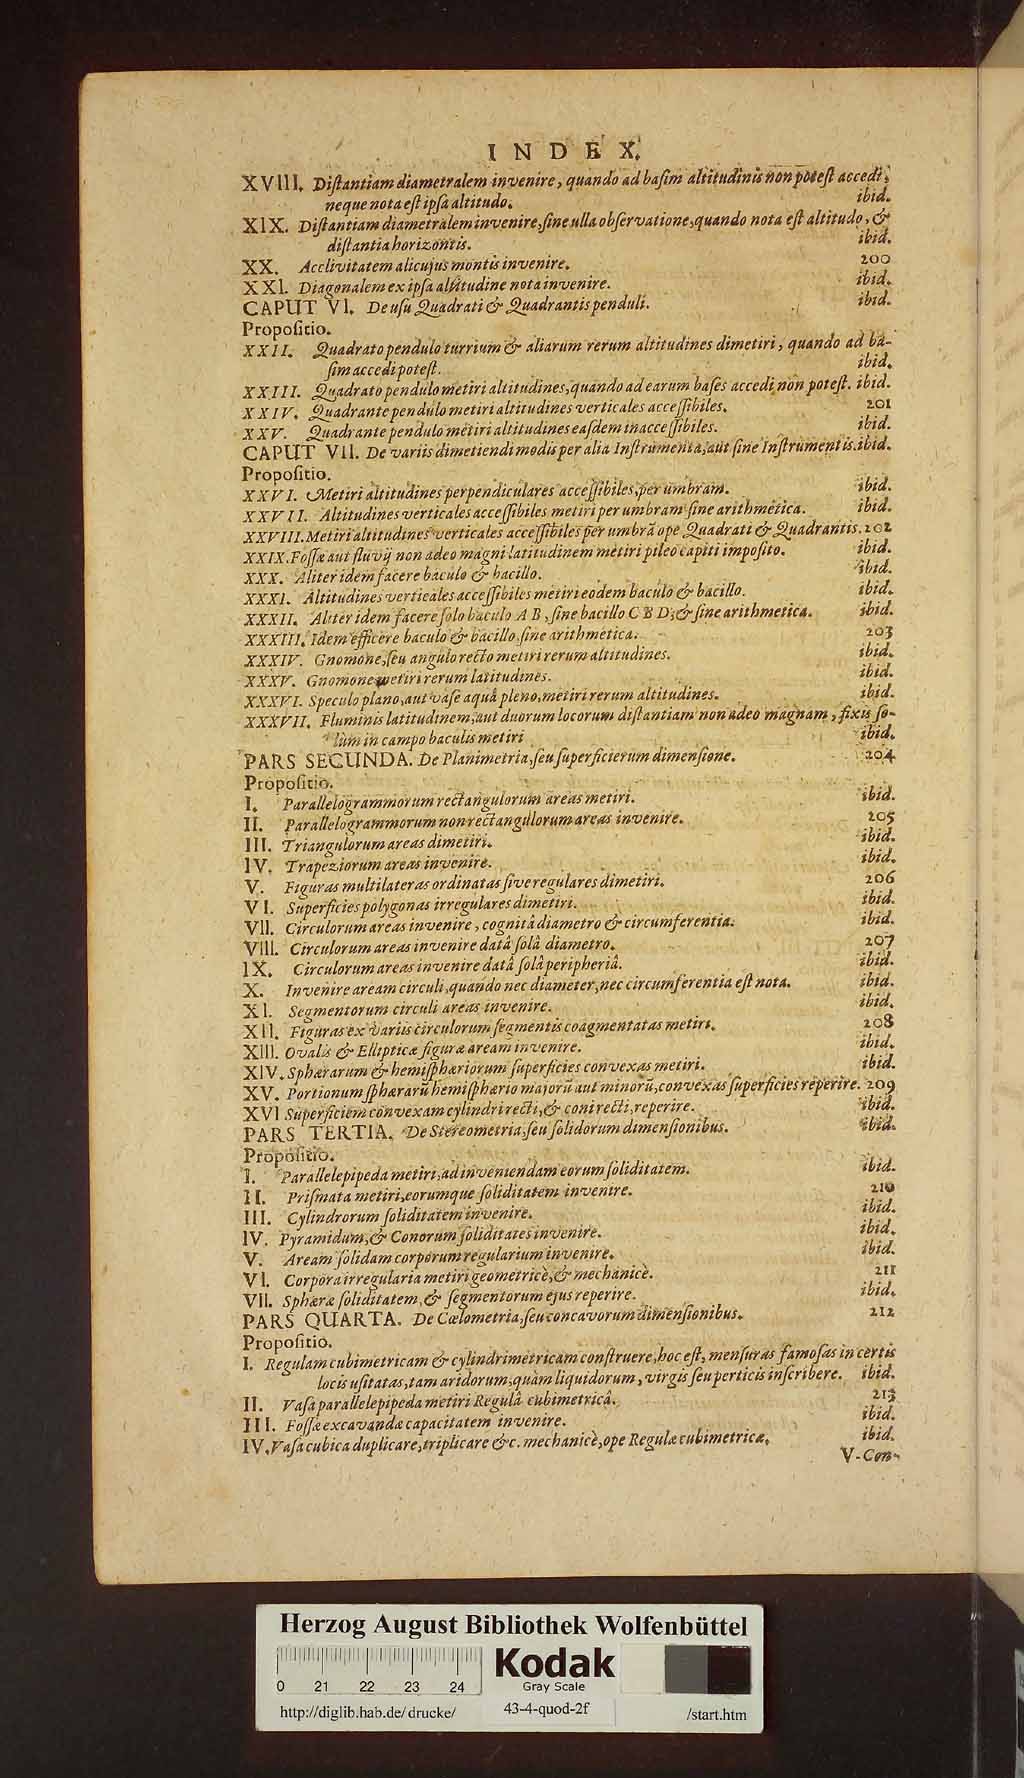 INDEX.
XVIII. Diſtantiam diametralem invenire, quando ad baſim altitudinis non poteſt accedi,
neque nota eſt ipſa altitudo. ibid.
XIX. Diſtantiam diametralem invenire, ſine ulla obſervatione, quando nota eſt altitudo, &
diſtantia horizontis. ibid.
XX. Acclivitatem alicujus montis invenire. 200
XXI. Diagonalem ex ipſa altitudine nota invenire. ibid.
CAPUT VI. De uſu Quadrati & Quadrantis penduli. ibid.
Propoſitio.
XXII. Quadrato pendulo turrium & aliarum rerum altitudines dimetiri, quando ad ba-
ſim accedi poteſt. ibid.
XXIII. Quadrato pendulo metiri altitudines, quando ad earum baſes accedi non poteſt. ibid.
XXIV. Quadrante pendulo metiri altitudines verticales acceſſibiles. 201
XXV. Quadrante pendulo metiri altitudines eaſdem inacceſſibiles. ibid.
CAPUT VII. De variis dimetiendi modis per alia Inſtrumenta, aut ſine Inſtrumentis. ibid.
Propoſitio.
XXVI. Metiri altitudines perpendiculares acceſſibiles, per umbram. ibid.
XXVII. Altitudines verticales acceſſibiles metiri per umbram ſine arithmetica. ibid.
XXVIII. Metiri altitudines verticales acceſſibiles per umbrã ope Quadrati & Quadrantis. 202
XXIX. Foſſæ aut fluvij non adeo magni latitudinem metiri pileo capiti impoſito. ibid.
XXX. Aliter idem facere baculo & bacillo. ibid.
XXXI. Altitudines verticales acceſſibiles metiri eodem baculo & bacillo. ibid.
XXXII. Aliter idem facere ſolo baculo A B, ſine bacillo C B D; & ſine arithmetica. ibid.
XXXIII. Idem efficere baculo & bacillo, ſine arithmetica. 203
XXXIV. Gnomone, ſeu angulo recto metiri rerum altitudines. ibid.
XXXV. Gnomone metiri rerum latitudines. ibid.
XXXVI. Speculo plano, aut vaſe aquâ pleno, metiri rerum altitudines. ibid.
XXXVII. Fluminis latitudinem, aut duorum locorum diſtantiam non adeo magnam, fixis ſo-
lùm in campo baculis metiri ibid.
PARS SECUNDA. De Planimetria, ſeu ſuperficierum dimenſione. 204
Propoſitio.
I. Parallelogrammorum rectangulorum areas metiri. ibid.
II. Parallelogrammorum non rectangulorum areas invenire. 205
III. Triangulorum areas dimetiri. ibid.
IV. Trapeziorum areas invenire. ibid.
V. Figuras multilateras ordinatas ſive regulares dimetiri. 206
VI. Superficies polygonas irregulares dimetiri. ibid.
VII. Circulorum areas invenire, cognitâ diametro & circumferentia. ibid.
VIII. Circulorum areas invenire datâ ſolâ diametro. 207
IX. Circulorum areas invenire datâ ſolâ peripheriâ. ibid.
X. Invenire aream circuli, quando nec diameter, nec circumferentia eſt nota. ibid.
XI. Segmentorum circuli areas invenire. ibid.
XII. Figuras ex variis circulorum ſegmentis coagmentatas metiri. 208
XIII. Ovalis & Ellipticæ figuræ aream invenire. ibid.
XIV. Sphærarum & hemiſphæriorum ſuperficies convexas metiri. ibid.
XV. Portionum ſphærarũ hemiſphærio majorũ aut minorũ, convexas ſuperficies reperire. 209
XVI Superficiem convexam cylindri recti, & coni recti, reperire. ibid.
PARS TERTIA. De Stereometria, ſeu ſolidorum dimenſionibus. ibid.
Propoſitio.
I. Parallelepipeda metiri, ad inveniendam eorum ſoliditatem. ibid.
II. Priſmata metiri, eorumque ſoliditatem invenire. 210
III. Cylindrorum ſoliditatem invenire. ibid.
IV. Pyramidum, & Conorum ſoliditates invenire. ibid.
V. Aream ſolidam corporum regularium invenire. ibid.
VI. Corpora irregularia metiri geometricè, & mechanicè. 211
VII. Sphæræ ſoliditatem, & ſegmentorum ejus reperire. ibid.
PARS QUARTA. De Cœlometria, ſeu concavorum dimenſionibus. 212
Propoſitio.
I. Regulam cubimetricam & cylindrimetricam conſtruere, hoc eſt, menſuras famoſas in certis
locis uſitatas, tam aridorum, quàm liquidorum, virgis ſeu perticis inſcribere. ibid.
II. Vaſa parallelepipeda metiri Regulâ cubimetricâ. 213
III. Foſſæ excavandæ capacitatem invenire. ibid.
IV. Vaſa cubica duplicare, triplicare &c. mechanicè, ope Regulæ cubimetricæ. ibid.
V. Con-
Herzog August Bibliothek Wolfenbüttel
Kodak
Gray Scale
0 21 22 23 24
http://diglib.hab.de/drucke/ 43-4-quod-2f /start.htm